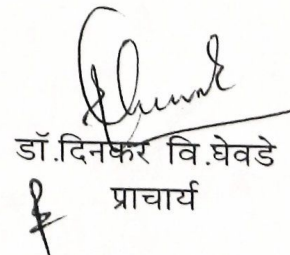 डॉ.दिनकर वि.घेवडे
प्राचार्य